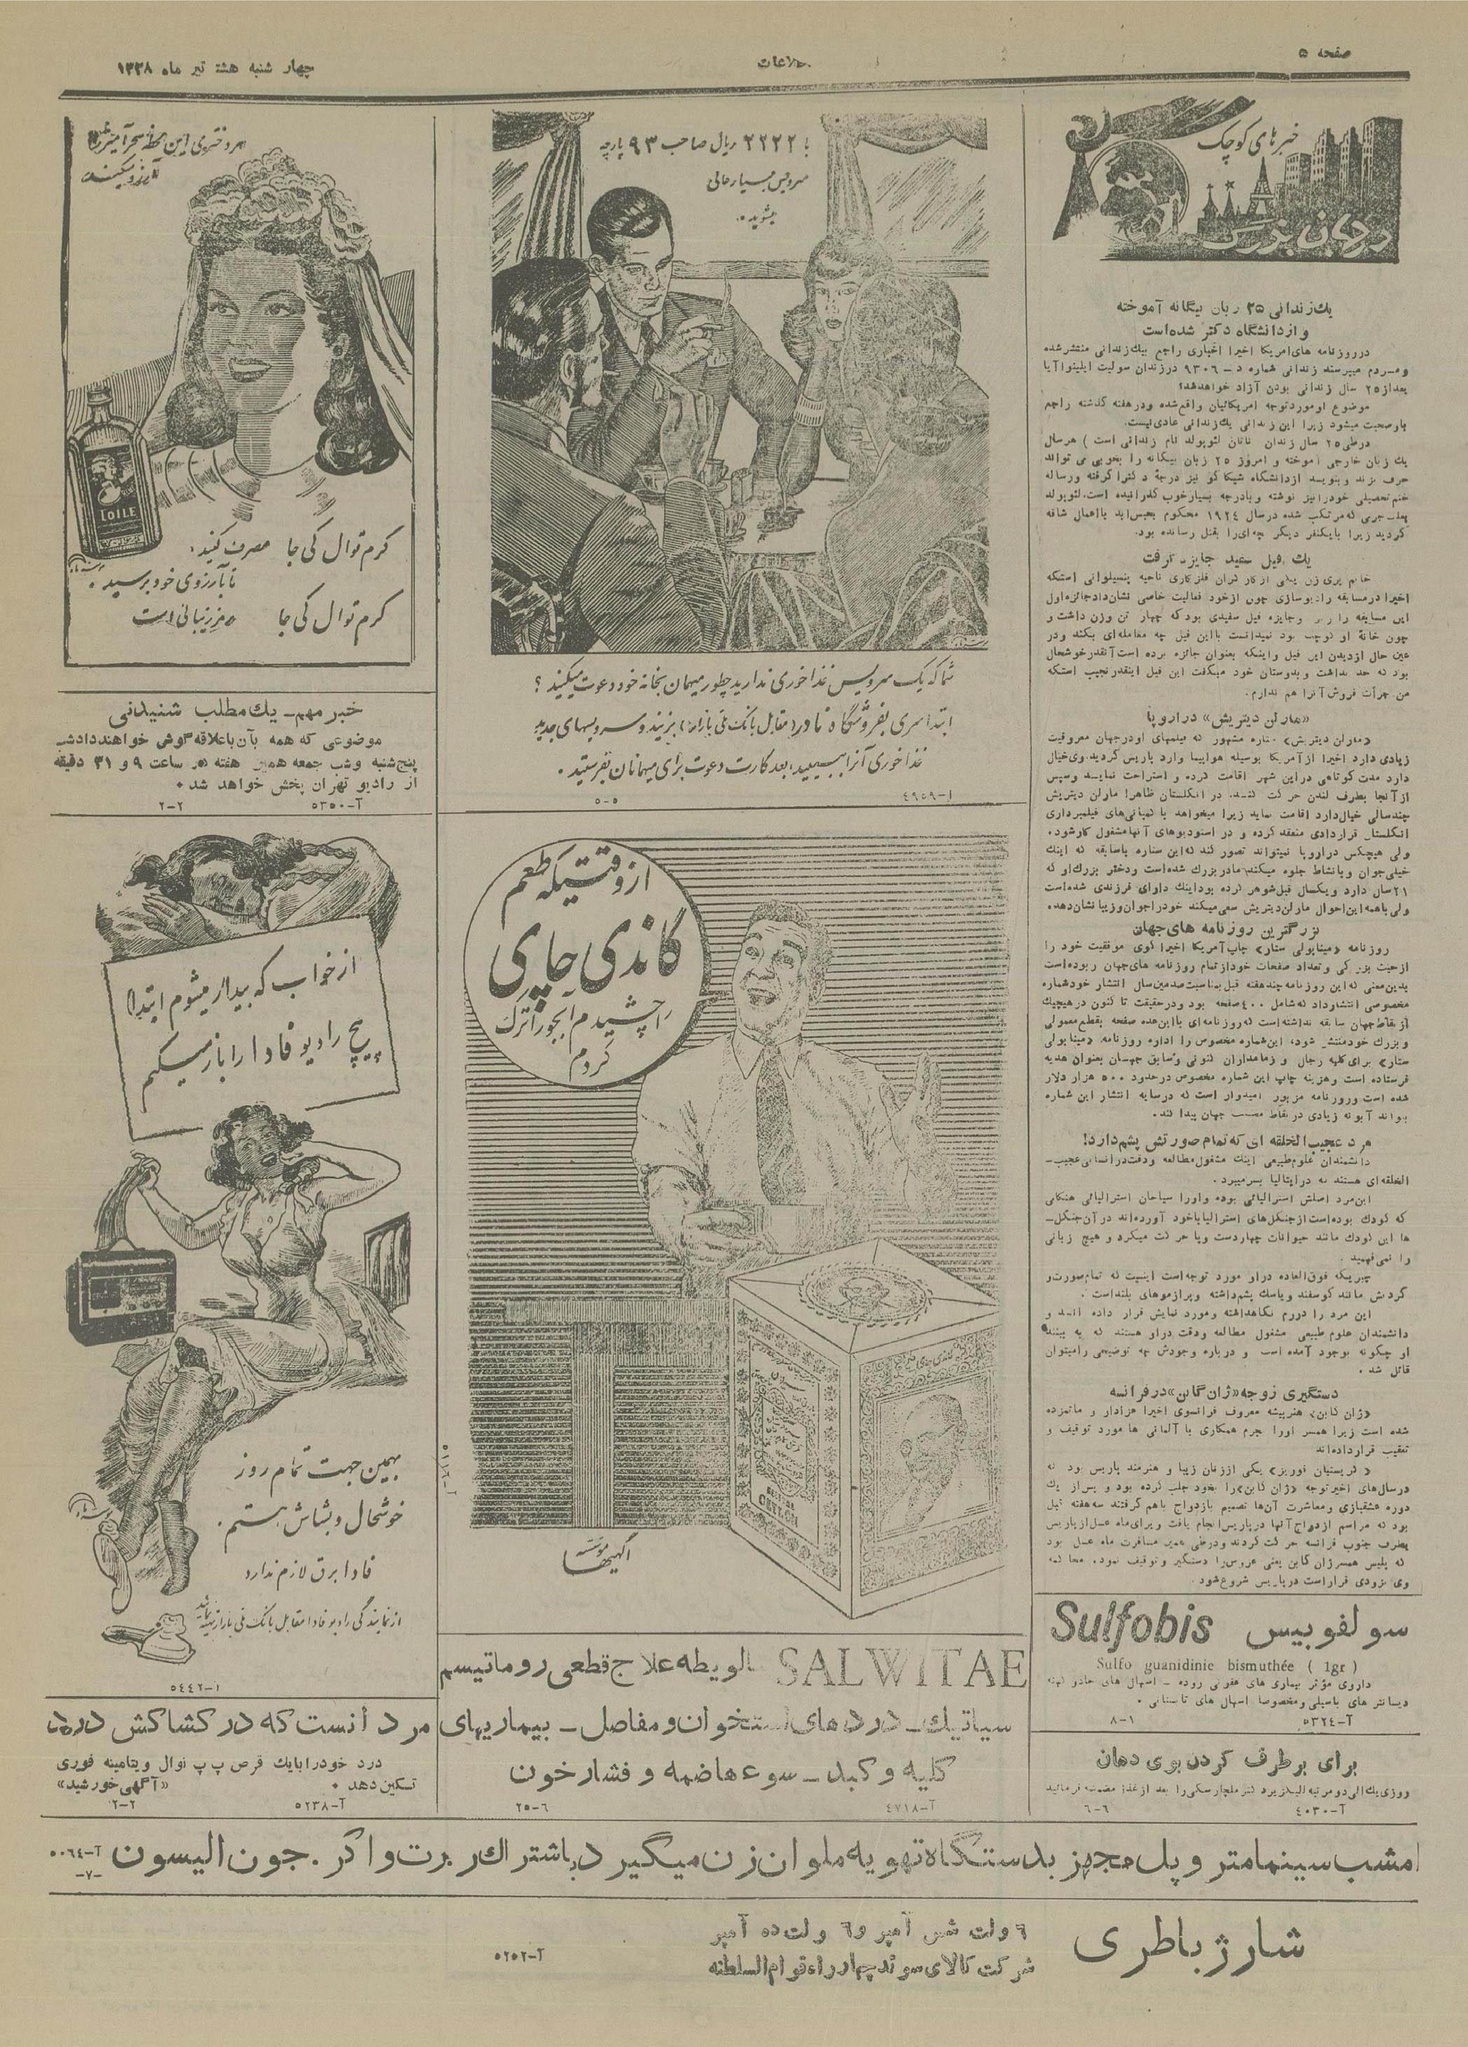 صفحه ۵
اطلاعات
چهار شنبه هشت تیر ماه ۱۳۲۸
خبرهای کوچک
یک زندانی ۲۵ زبان بیگانه آموخته
و از دانشگاه دکتر شده است
در روزنامه های امریکا اخیرا اخباری راجع بیک زندانی منتشر شده
و مردم میپرسند زندانی شماره د – ۹۳۰۶ در زندان سولیت ایلینوا آیا
بعد از ۲۵ سال زندانی بودن آزاد خواهد شد؟
موضوع او مورد توجه امریکائیان واقع شده و در هفته گذشته راجع
باو صحبت میشود زیرا این زندانی یک زندانی عادی نیست.
در طی ۲۵ سال زندان ناتان لئوپولد نام زندانی است ) هر سال
یک زبان خارجی آموخته و امروز ۲۵ زبان بیگانه را بخوبی می تواند
حرف بزند و بنویسد از دانشگاه شیکاگو نیز درجهٔ دکترا گرفته و رساله
ختم تحصیلی خود را نیز نوشته و با درجه بسیار خوب گذرانیده است. لئوپولد
بعلت جرمی که مرتکب شده در سال ۱۹۲۴ محکوم بحبس ابد با اعمال شاقه
گردید زیرا با یکنفر دیگر بچه ای را بقتل رسانده بود.
یک فیل سفید جایزه گرفت
خانم پری زن یکی از کارگران فلزکاری ناحیه پنسیلوانی استکه
اخیرا در مسابقه رادیو سازی چون از خود فعالیت خاصی نشان داد جائزه اول
این مسابقه را برد و جایزه فیل سفیدی بود که چهار تن وزن داشت و
چون خانهٔ او کوچک بود نمیدانست با این فیل چه معامله ای بکند و در
عین حال از دیدن این فیل و اینکه بعنوان جائزه برده است آنقدر خوشحال
بود که حد نداشت و بدوستان خود میگفت این فیل اینقدر نجیب استکه
من جرأت فروش آنرا هم ندارم.
«مارلن دیتریش» در اروپا
«مارلن دیتریش» ستاره مشهور که فیلمهای او در جهان معروفیت
زیادی دارد اخیرا از آمریکا بوسیله هواپیما وارد پاریس گردید. وی خیال
دارد مدت کوتاهی در این شهر اقامت کرده و استراحت نماید و سپس
از آنجا بطرف لندن حرکت کند. در انگلستان ظاهرا مارلن دیتریش
چند سالی خیال دارد اقامت نماید زیرا میخواهد با کمپانی های فیلمبرداری
انگلستان قراردادی منعقد کرده و در استودیوهای آنها مشغول کار شود.
ولی هیچکس در اروپا نمیتواند تصور کند که این ستاره با سابقه که اینک
خیلی جوان و با نشاط جلوه میکند مادر بزرگ شده است و دختر بزرگ او که
۲۱ سال دارد و یکسال قبل شوهر کرده بود اینک دارای فرزندی شده است
ولی با همه این احوال مارلن دیتریش سعی میکند خود را جوان و زیبا نشان دهد.
بزرگترین روزنامه های جهان
روزنامه «میناپولی ستار» چاپ آمریکا اخیرا گوی موفقیت خود را
از حیث بزرگی و تعداد صفحات خود از تمام روزنامه های جهان ربوده است
بدین معنی که این روزنامه چند هفته قبل بمناسبت صدمین سال انتشار خود شماره
مخصوصی انتشار داد که شامل ۴۰۰ صفحه بود و در حقیقت تا کنون در هیچیک
از نقاط جهان سابقه نداشته است که روزنامه ای با این عده صفحه بقطع معمولی
و بزرگ خود منتشر شود، این شماره مخصوص را اداره روزنامه «میناپولی
ستار» برای کلیه رجال و زمامداران کنونی و سابق جهان بعنوان هدیه
فرستاده است و هزینه چاپ این شماره مخصوص در حدود ۵۰۰ هزار دلار
شده است و روزنامه مزبور امیدوار است که در سایه انتشار این شماره
بتواند آبونه زیادی در نقاط مختلف جهان پیدا کند.
مرد عجیب الخلقه ای که تمام صورتش پشم دارد!
دانشمندان علوم طبیعی اینک مشغول مطالعه و دقت در انسانی عجیب‌-
الخلقه ای هستند که در ایتالیا بسر میبرد.
این مرد اصلش استرالیائی بوده و او را سیاحان استرالیائی هنگامی
که کودک بوده است از جنگل های استرالیا با خود آورده اند در آن جنگل-
ها این کودک مانند حیوانات چهار دست و پا حرکت میکرد و هیچ زبانی
را نمی فهمید.
چیزیکه فوق العاده در او مورد توجه است اینست که تمام صورت و
گردنش مانند گوسفند و یا سگ پشم داشته و پر از موهای بلند است.
این مرد را در رم نگاهداشته و مورد نمایش قرار داده اند و
دانشمندان علوم طبیعی مشغول مطالعه و دقت در او هستند که به بینند
او چگونه بوجود آمده است و درباره وجودش چه توضیحی را میتوان
قائل شد.
دستگیری زوجه «ژان گابن» در فرانسه
«ژان گابن» هنرپیشه معروف فرانسوی اخیرا عزادار و ماتمزده
شده است زیرا همسر او را بجرم همکاری با آلمانی ها مورد توقیف و
تعقیب قرار داده اند
«کریستیان فوریز» یکی از زنان زیبا و هنرمند پاریس بود که
در سال های اخیر توجه «ژان گابن» را بخود جلب کرده بود و پس از یک
دوره عشقبازی و معاشرت آن ها تصمیم بازدواج باهم گرفتند سه هفته قبل
بود که مراسم ازدواج آنها در پاریس انجام یافت و برای ماه عسل از پاریس
بطرف جنوب فرانسه حرکت کردند و در طی همین مسافرت ماه عسل بود
که پلیس همسر ژان گابن یعنی عروس را دستگیر و توقیف نمود. محاکمه
وی بزودی قرار است در پاریس شروع شود.
سولفوبیس Sulfobis
Sulfo guanidinie bismuthée ( 1gr )
داروی مؤثر بیماری های عفونی روده – اسهال های حاد و کهنه
دیسانتری های باسیلی و مخصوصا اسهال های تابستانی.
آ–۵۳۲۴ ۸–۱
برای برطرف کردن بوی دهان
آ–۴۰۳۰ ۶–۶
با ۲۲۲۲ ریال صاحب ۹۳ پارچه
سرویس بسیار عالی
میشوید.
شما که یک سرویس غذاخوری ندارید چطور میهمان بخانه خود دعوت میکنید؟
ابتدا سری بفروشگاه نادر (مقابل بانک ملی بازار) بزنید و سرویسهای جدید
غذاخوری آنرا ببینید، بعد کارت دعوت برای میهمانان بفرستید.
آ–۴۹۵۹ ۵–۵
از وقتیکه طعم
گاندی چای
را چشیدم آبجو را ترک
کردم
CEYLON
موسسه
آگهیها
آ–۵۱۱۶
SALWITAE سالویطه علاج قطعی روماتیسم
سیاتیک – دردهای استخوان و مفاصل – بیماریهای
کلیه و کبد – سوء هاضمه و فشار خون
آ–۴۷۱۸ ۲۵–۶
هر دختری این لحظه سحرآمیز را
آرزو میکند
LOILE
کرم توال کی جا مصرف کنید،
تا بآرزوی خود برسید.
کرم توال کی جا رمز زیبائی است
خبر مهم – یک مطلب شنیدنی
موضوعی که همه بآن با علاقه گوش خواهند داد شب
پنج شنبه و شب جمعه همین هفته در ساعت ۹ و ۳۱ دقیقه
از رادیو تهران پخش خواهد شد.
آ–۵۳۵۰ ۲–۲
از خواب که بیدار میشوم ابتدا
پیچ رادیو فادا را باز میکنم
بهمین جهت تمام روز
خوشحال و بشاش هستم.
فادا برق لازم ندارد
از نمایندگی رادیو فادا مقابل بانک ملی بازار
آ–۵۴۴۲
مرد آنست که در کشاکش درد
درد خود را با یک قرص پ پ نوال ویتامینه فوری
تسکین دهد. «آگهی خورشید»
آ–۵۲۳۸ ۲–۲
امشب سینما مترو پل مجهز بدستگاه تهویه ملوان زن میگیرد باشتراک ربرت واگر. جون الیسون آ–۵۰۶۴
–۷–
شارژ باطری
۶ ولت شش آمپر و ۶ ولت ده آمپر
شرکت کالای سوئد چهار راه قوام السلطنه
آ–۵۲۵۲